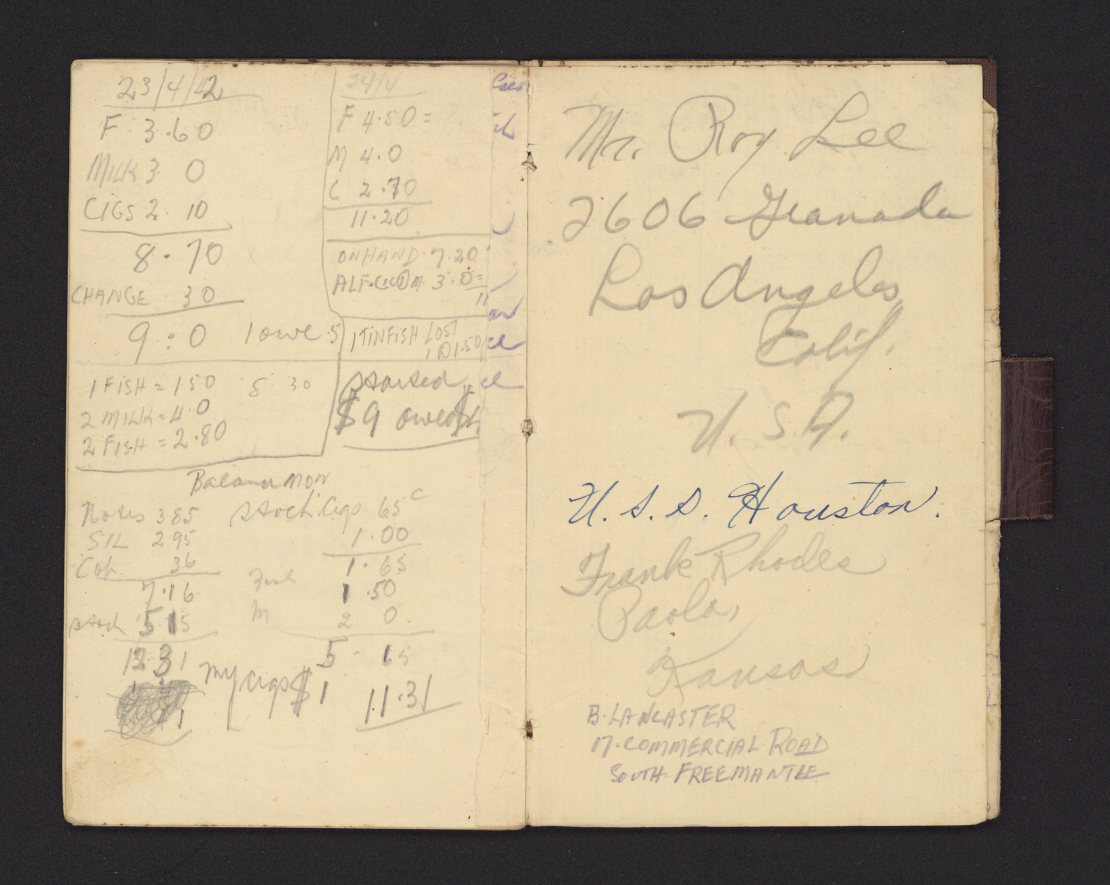 23/4/42
F 3.60
MILK 3. 0
CIGS 2. 10
8.70
CHANGE. 30
9.:0 I owe .5
1 FISH = 150 5 30
2 MILK = 4.0
2 FISH = 2.80
24/4
F 4.50 =
M 4.0
C 2.70
11.20
ON HAND. 7.20
ALF. M. 3.0 =
11
1 TIN FISH. LOST
1 @ 1.50
started
$9 owed $
Balance MON
Notes 385 stock Cigs 65c
SIL 295 1.00
Cop. 36 1.65
7.16 1.50
stock 515 M 2 0.
12.31 5 - 65
My cigs $1 11.31
Mr. Roy Lee
2606 Granada
Los Angeles
Calif.
U.S.A.
U.S.S. Houston.
Frank Rhodes
Paola,
Kansas
B. LANCASTER
17. COMMERCIAL ROAD
SOUTH. FREEMANTLE